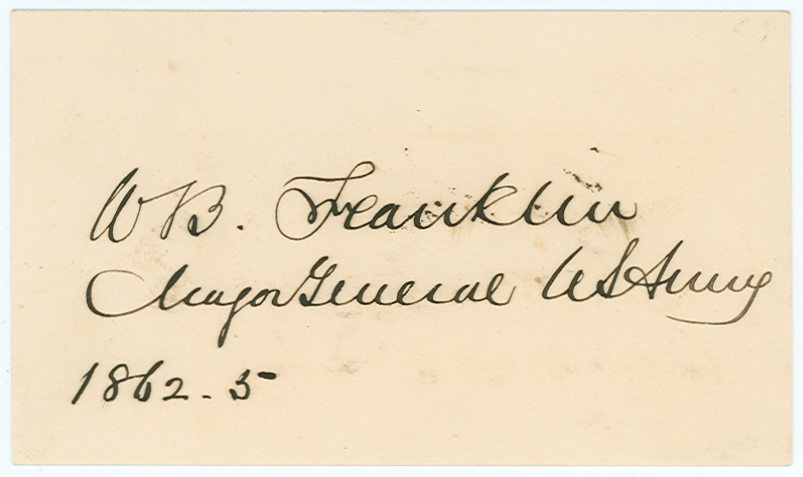 W B. Franklin
Major General U S Army
1862-5